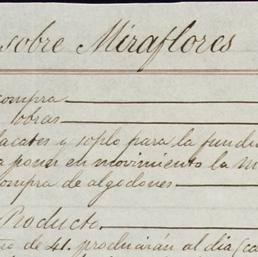 sobre Miraflores
compra
obras
lacates y soplo para la fundi
a poner en movimiento la m
compra de algodones
Producto.
no de 41. producirán al dia (co